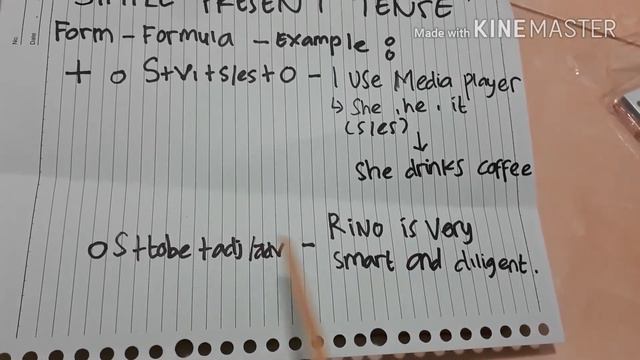 SIMPLE PRESENT TENSE
Made with KINEMASTER
No.
Date
Form - Formula - Example :
+ o S+V1+s/es+O - I Use Media Player
↳ She . he . it
(s/es)
↓
She drinks coffee
o S+tobe+adj/adv - RiNO is Very
smart and diligent.